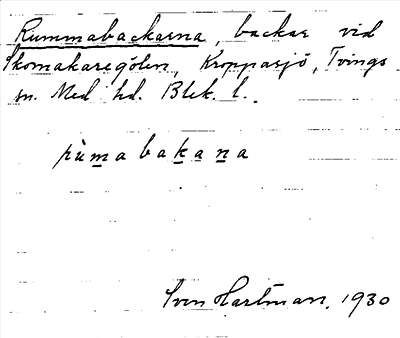 Rummabackarna, backar vid
Skomakaregölen, Kroppasjö, Tvings
sn. Med hd. Blek. l.
rùmabakana
Sven Hartman, 1930